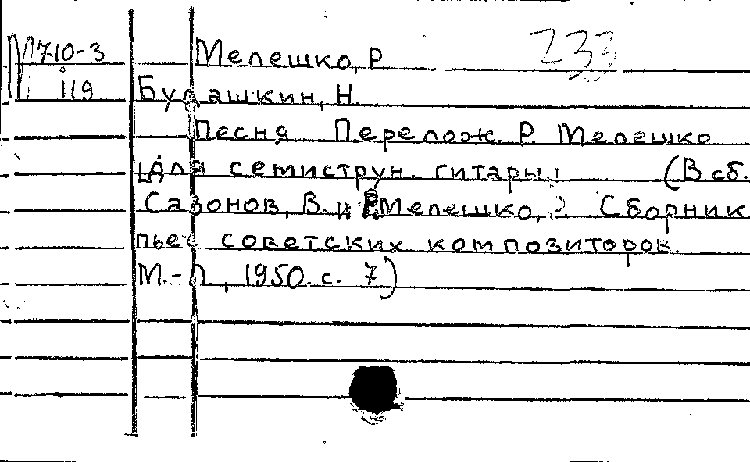 233
М710-3 Мелешко, Р.
119 Будашкин, Н.
Песня. Перелож. Р. Мелешко
для семиструн. гитары. (В сб.
Сазонов, В. и Мелешко, Р. Сборник
пьес советских композиторов.
М.-Л., 1950. с. 7)